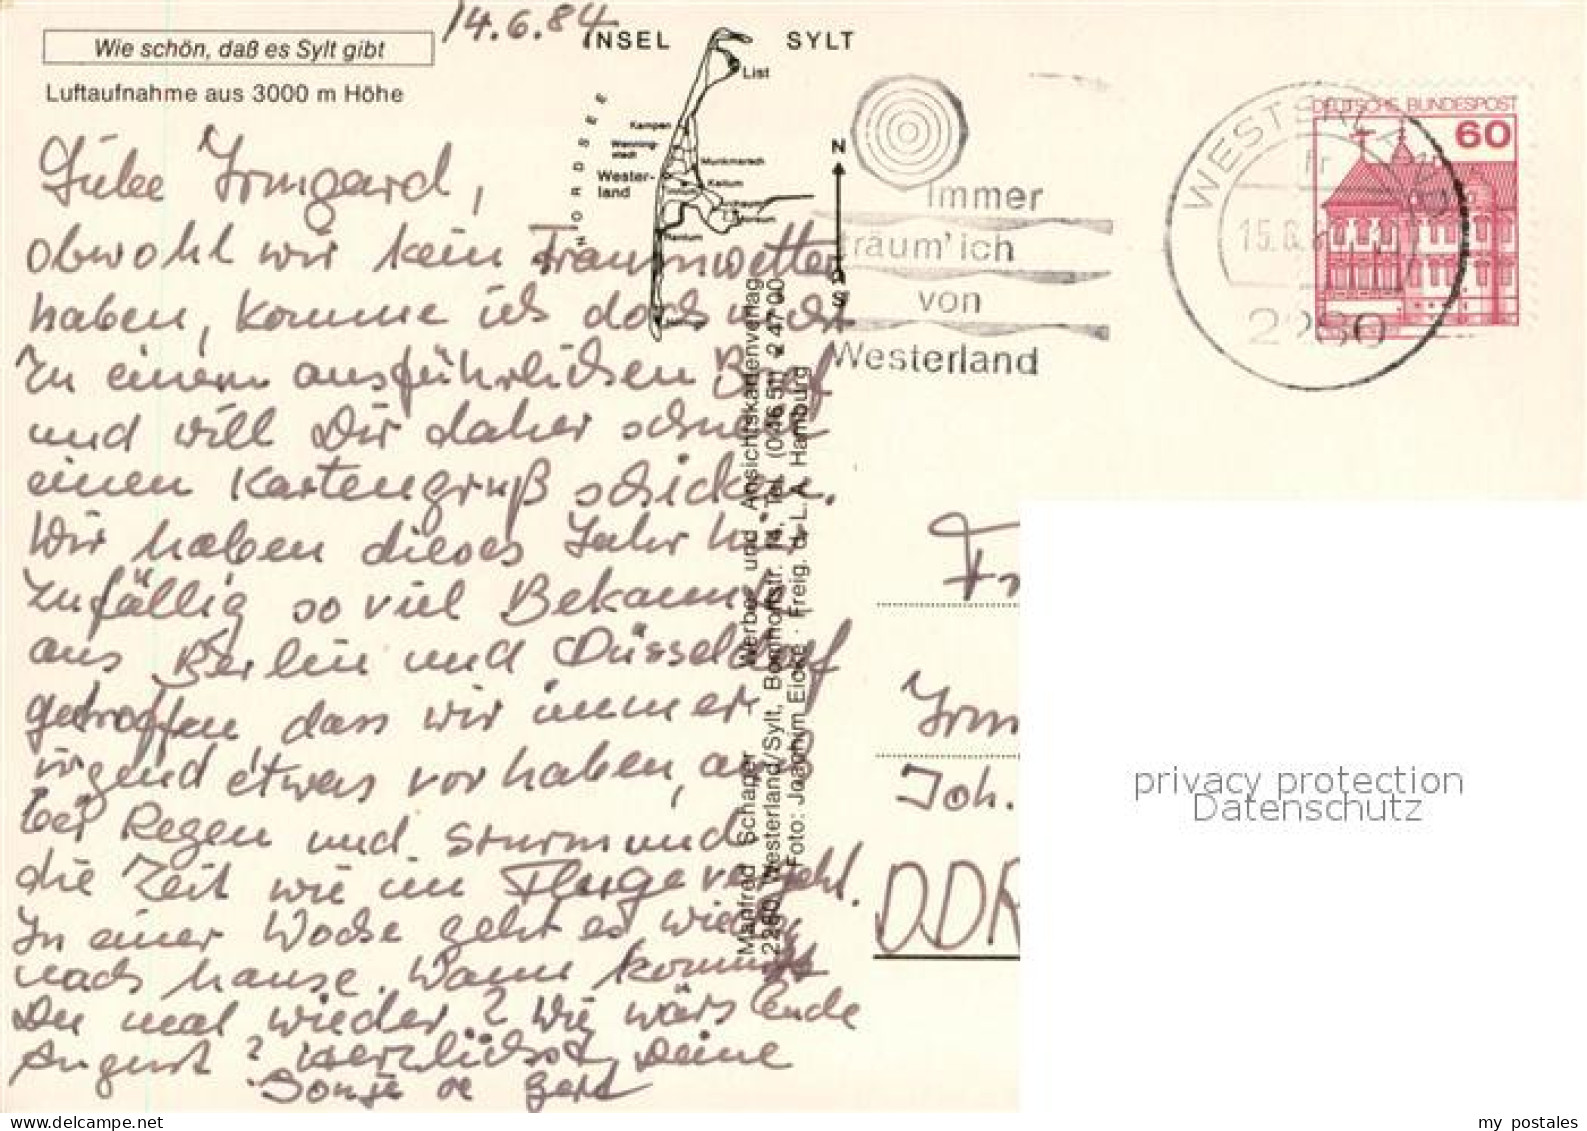 14.6.84
Wie schön, daß es Sylt gibt
Luftaufnahme aus 3000 m Höhe
INSEL SYLT
List
Kampen
Wenning-
stedt
Munkmarsch
Wester-
land
Keitum
Archsum
Morsum
Rantum
NORDSEE
N
S
Immer
träum' ich
von
Westerland
WESTERLAND
15.6.
2280
DEUTSCHE BUNDESPOST
60
Liebe Irmgard,
obwohl wir kein Traumwetter
haben, komme ich doch nicht
zu einem ausführlichen Brief
und will Dir daher schnell
einen Kartengruß schicken.
Wir haben dieses Jahr hier
zufällig so viel Bekannte
aus Berlin und Düsseldorf
getroffen dass wir immer
irgend etwas vorhaben, auch
bei Regen und Sturm und
die Zeit wie im Fluge vergeht.
In einer Woche geht es wieder
nach hause. Wann kommst
Du mal wieder? Wie wärs Ende
August? Herzlichst, Deine
Sonja &  Gerd
Manfred Schaper - Werbe- und Ansichtskartenverlag
2280 Westerland/Sylt, Bomhoffstr. 14, Tel. (04651) 24700
Foto: Joachim Eicke · Freig. d. L.A. Hamburg
Fr
Irm
Joh.
DDR
privacy protection
Datenschutz
www.delcampe.net
my_postales